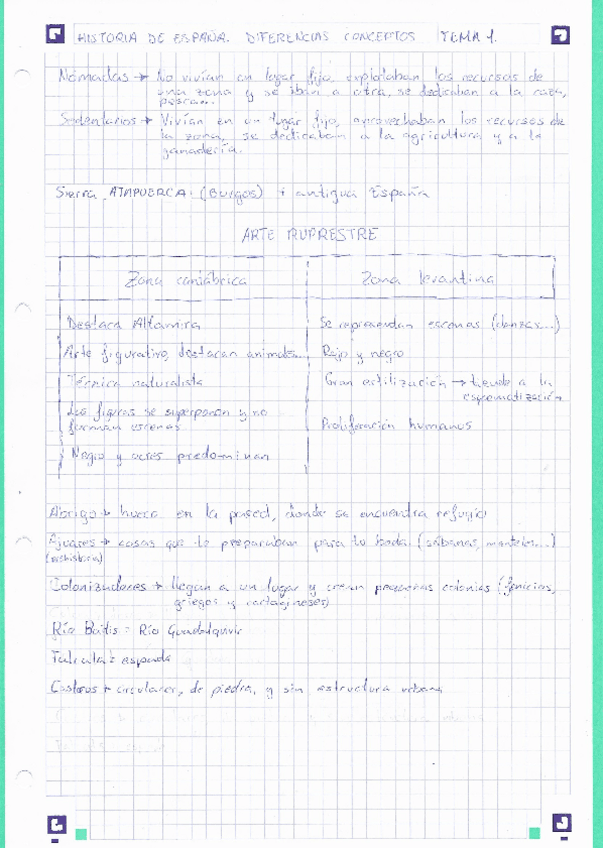 HISTORIA DE ESPAÑA. DIFERENCIAS CONCEPTOS TEMA 1.
Nómadas → No vivían en lugar fijo, explotaban los recursos de
una zona y se iban a otra, se dedicaban a la caza,
pesca...
Sedentarios → Vivían en un lugar fijo, aprovechaban los recursos de
la zona, se dedicaban a la agricultura y a la
ganadería.
Sierra ATAPUERCA (Burgos) + antigua España
ARTE RUPRESTRE
Zona cantábrica
Zona levantina
Destaca Altamira
Arte figurativo, destacan animales...
Técnica naturalista
Las figuras se superponen y no
forman escenas
Negro y ocres predominan
Se representan escenas (danzas...)
Rojo y negro
Gran estilización → tiende a la
esquematización
Proliferación humanos
Abrigo → hueco en la pared, donde se encuentra refugio
Ajuares → cosas que te preparaban para tu boda (sábanas, manteles...)
(prehistoria)
Colonizadores → llegan a un lugar y crean pequeñas colonias (fenicios,
griegos y cartagineses)
Río Baitis = Río Guadalquivir
Falcata = espada
Castros → circulares, de piedra, y sin estructura urbana